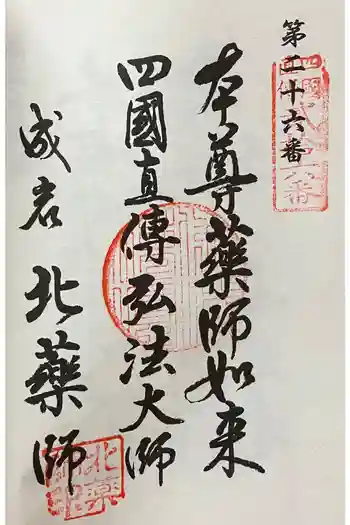 第二十六番
本尊薬師如来
四國直傳弘法大師
成岩
北薬師